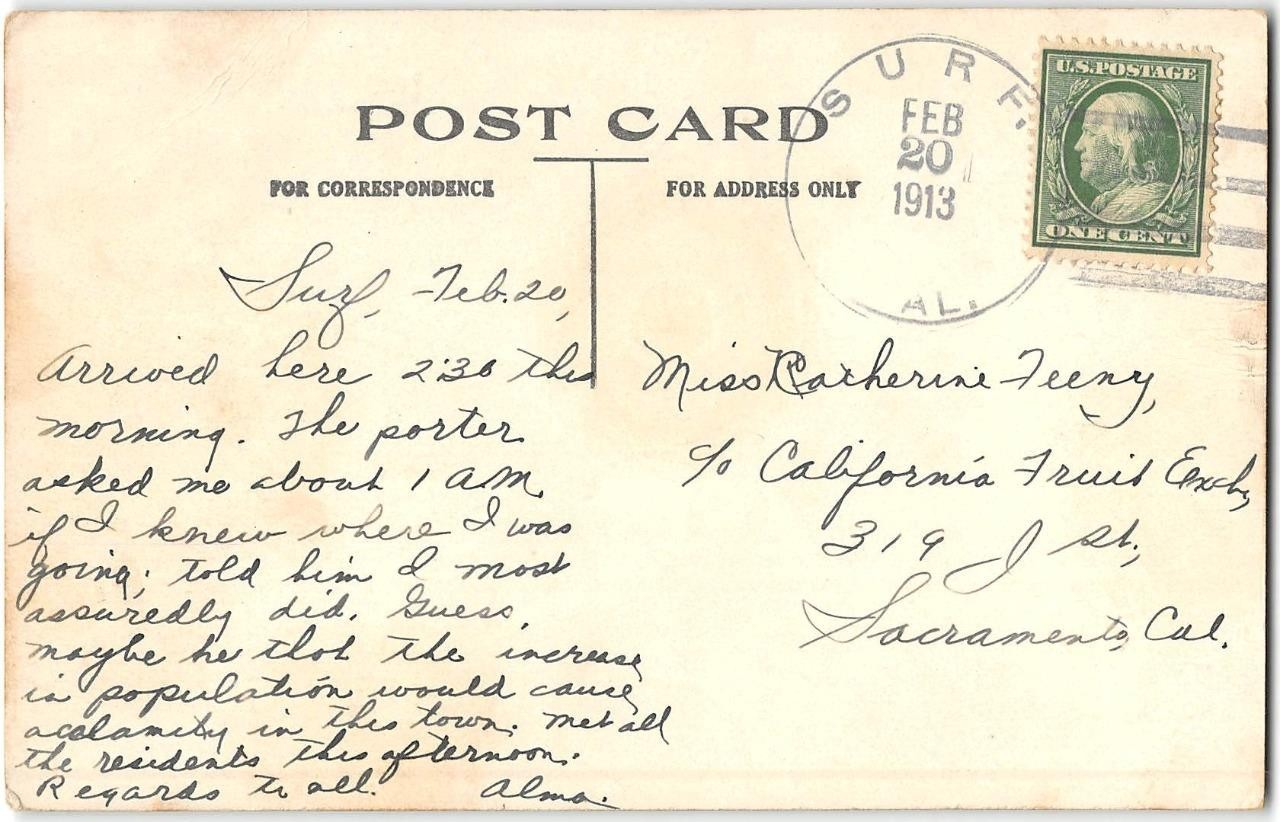 POST CARD
FOR CORRESPONDENCE
FOR ADDRESS ONLY
SURF.
FEB
20
1913
AL.
U.S. POSTAGE
ONE CENT
Surf, Feb. 20,
Arrived here 2:30 this
morning. The porter
asked me about 1 A.M.
if I knew where I was
going; told him I most
assuredly did. Guess,
maybe he thot the increase
in population would cause
a calamity in this town. Met all
the residents this afternoon.
Regards to all. Alma.
Miss Catherine Feeny,
c/o California Fruit Exch,
319 J St.,
Sacramento, Cal.